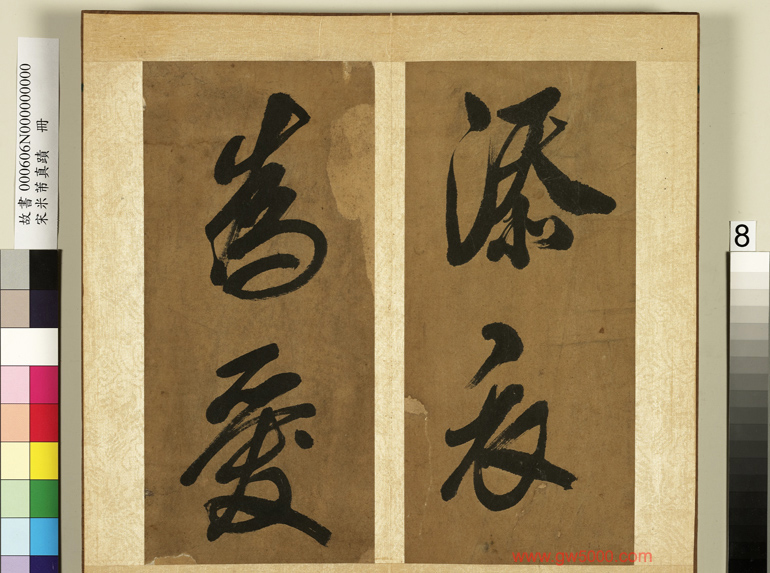 添衣
為愛
故書 000606N000000000
宋米芾真蹟 冊
8
www.gw5050.com